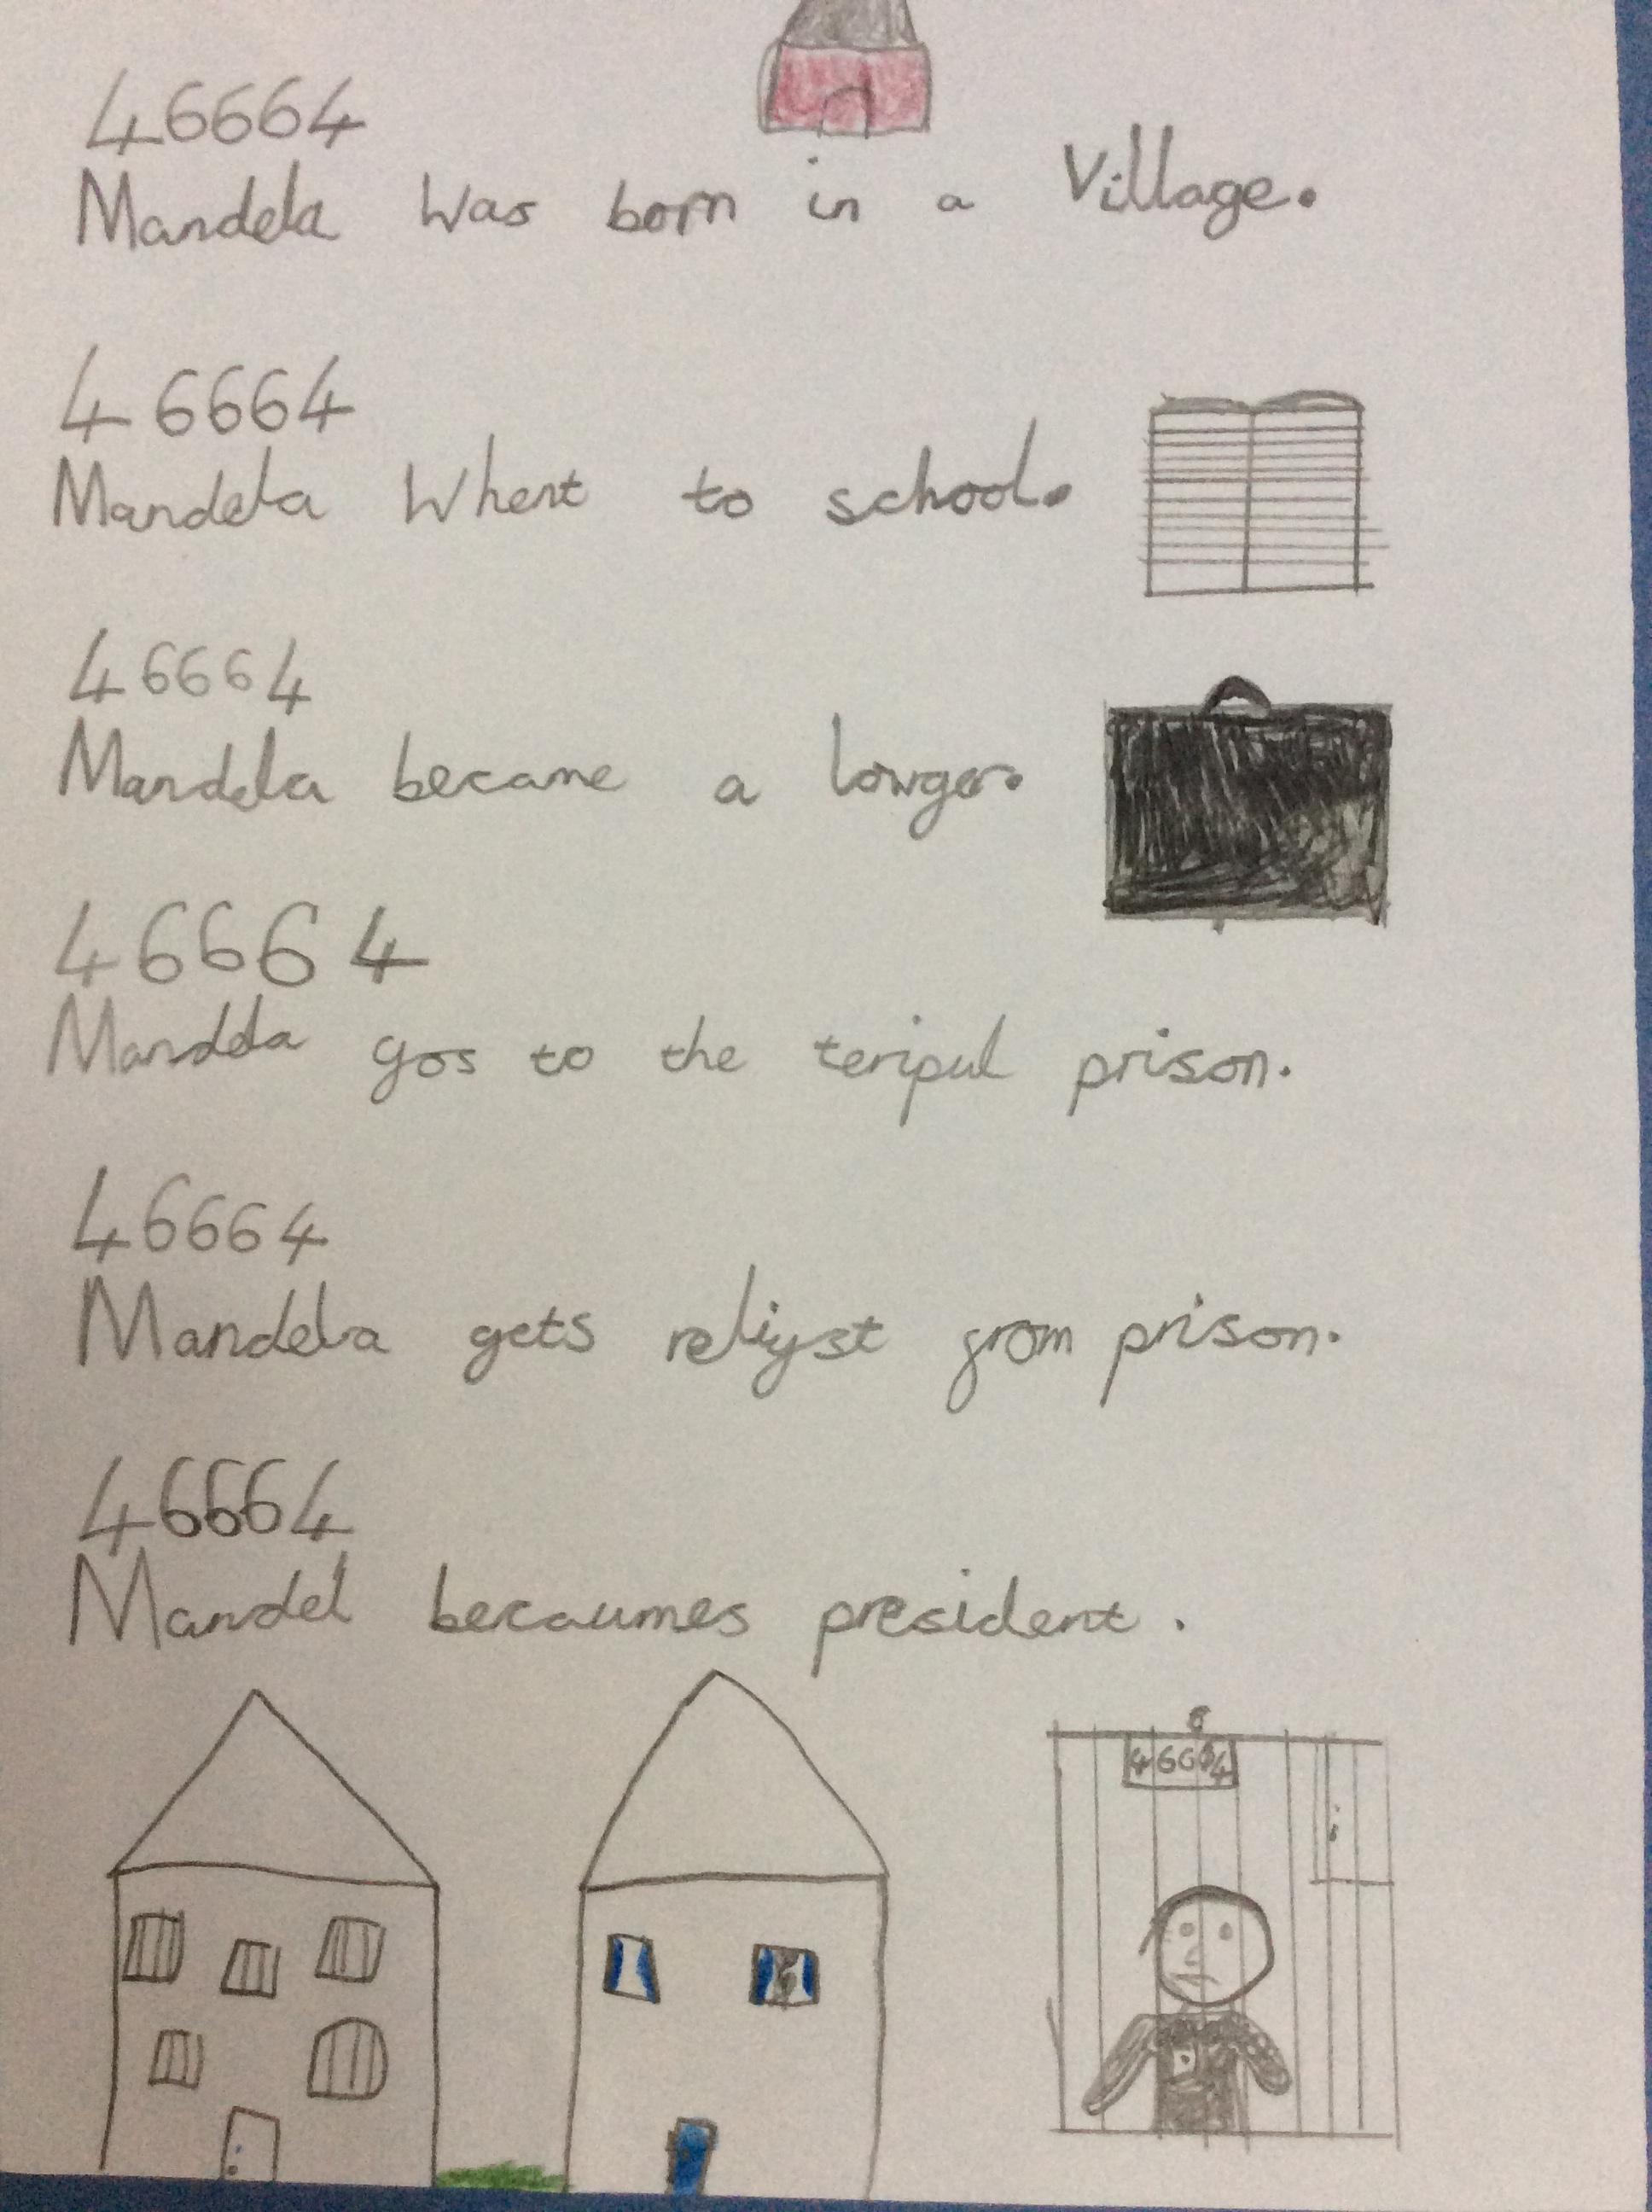 46664
Mandela was born in a Village.
46664
Mandela Whent to school.
46664
Mandela became a lowyer.
46664
Mandela gos to the teripul prison.
46664
Mandela gets reliyst from prison.
46664
Mandel becaumes president.
46664